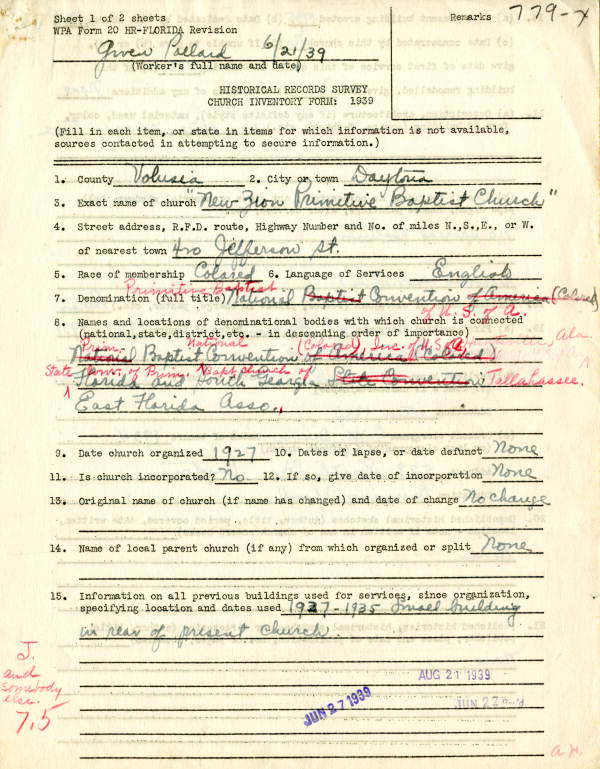 Sheet 1 of 2 sheets
WPA Form 20 HR-FLORIDA Revision
Remarks 779-x
Gwen Pollard 6/21/39
(Worker's full name and date)
HISTORICAL RECORDS SURVEY
CHURCH INVENTORY FORM: 1939
(Fill in each item, or state in items for which information is not available,
sources contacted in attempting to secure information.)
1. County Volusia 2. City or town Daytona
3. Exact name of church "New Zion Primitive Baptist Church"
4. Street address, R.F.D. route, Highway Number and No. of miles N.,S.,E., or W.
of nearest town 400 Jefferson St.
5. Race of membership Colored 6. Language of Services English
Primitive Baptist
7. Denomination (full title) National Baptist Convention of America (Colored)
of U.S. of A.
8. Names and locations of denominational bodies with which church is connected
(national, state, district, etc. - in descending order of importance)
Prim. National (Colored) Inc. of U.S.A. Ala.
National Baptist Convention of America (Colored)
State Conv. of Prim. Bapt church of
Florida and South Georgia State Convention Tallahassee.
East Florida Asso.
9. Date church organized 1927 10. Dates of lapse, or date defunct None
11. Is church incorporated? No. 12. If so, give date of incorporation None
13. Original name of church (if name has changed) and date of change No change
14. Name of local parent church (if any) from which organized or split None
15. Information on all previous buildings used for services, since organization,
specifying location and dates used 1927-1935 Small building
in rear of present church.
J.
and
somebody
else.
7,5
AUG 21 1939
JUN 27 1939
JUN 22
a.H.